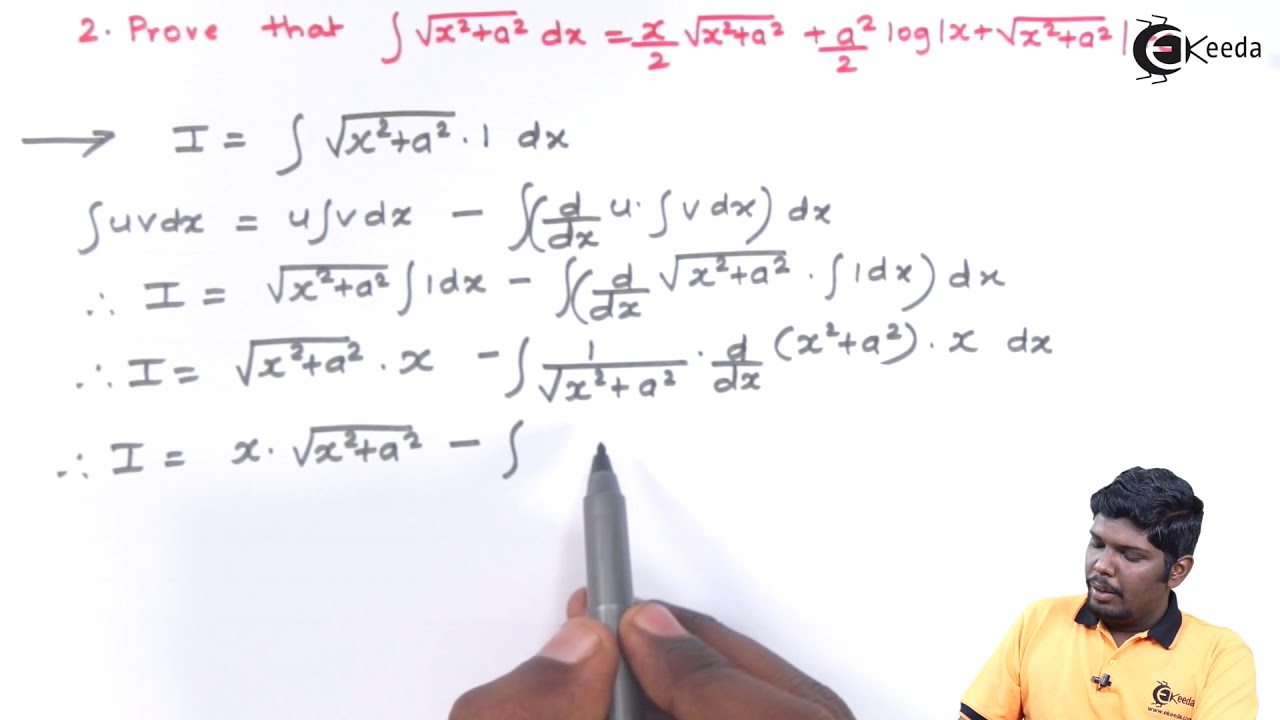 2. Prove that ∫ √x²+a² dx = x/2 √x²+a² + a²/2 log|x+√x²+a²|
eKeeda
→ I = ∫ √x²+a² · 1 dx
∫uvdx = u∫vdx − ∫(d/dx u · ∫vdx) dx
∴ I = √x²+a² ∫1dx − ∫(d/dx √x²+a² · ∫1dx) dx
∴ I = √x²+a² · x − ∫ 1/√x²+a² · d/dx (x²+a²) · x dx
∴ I = x · √x²+a² − ∫
eKeeda
www.ekeeda.com